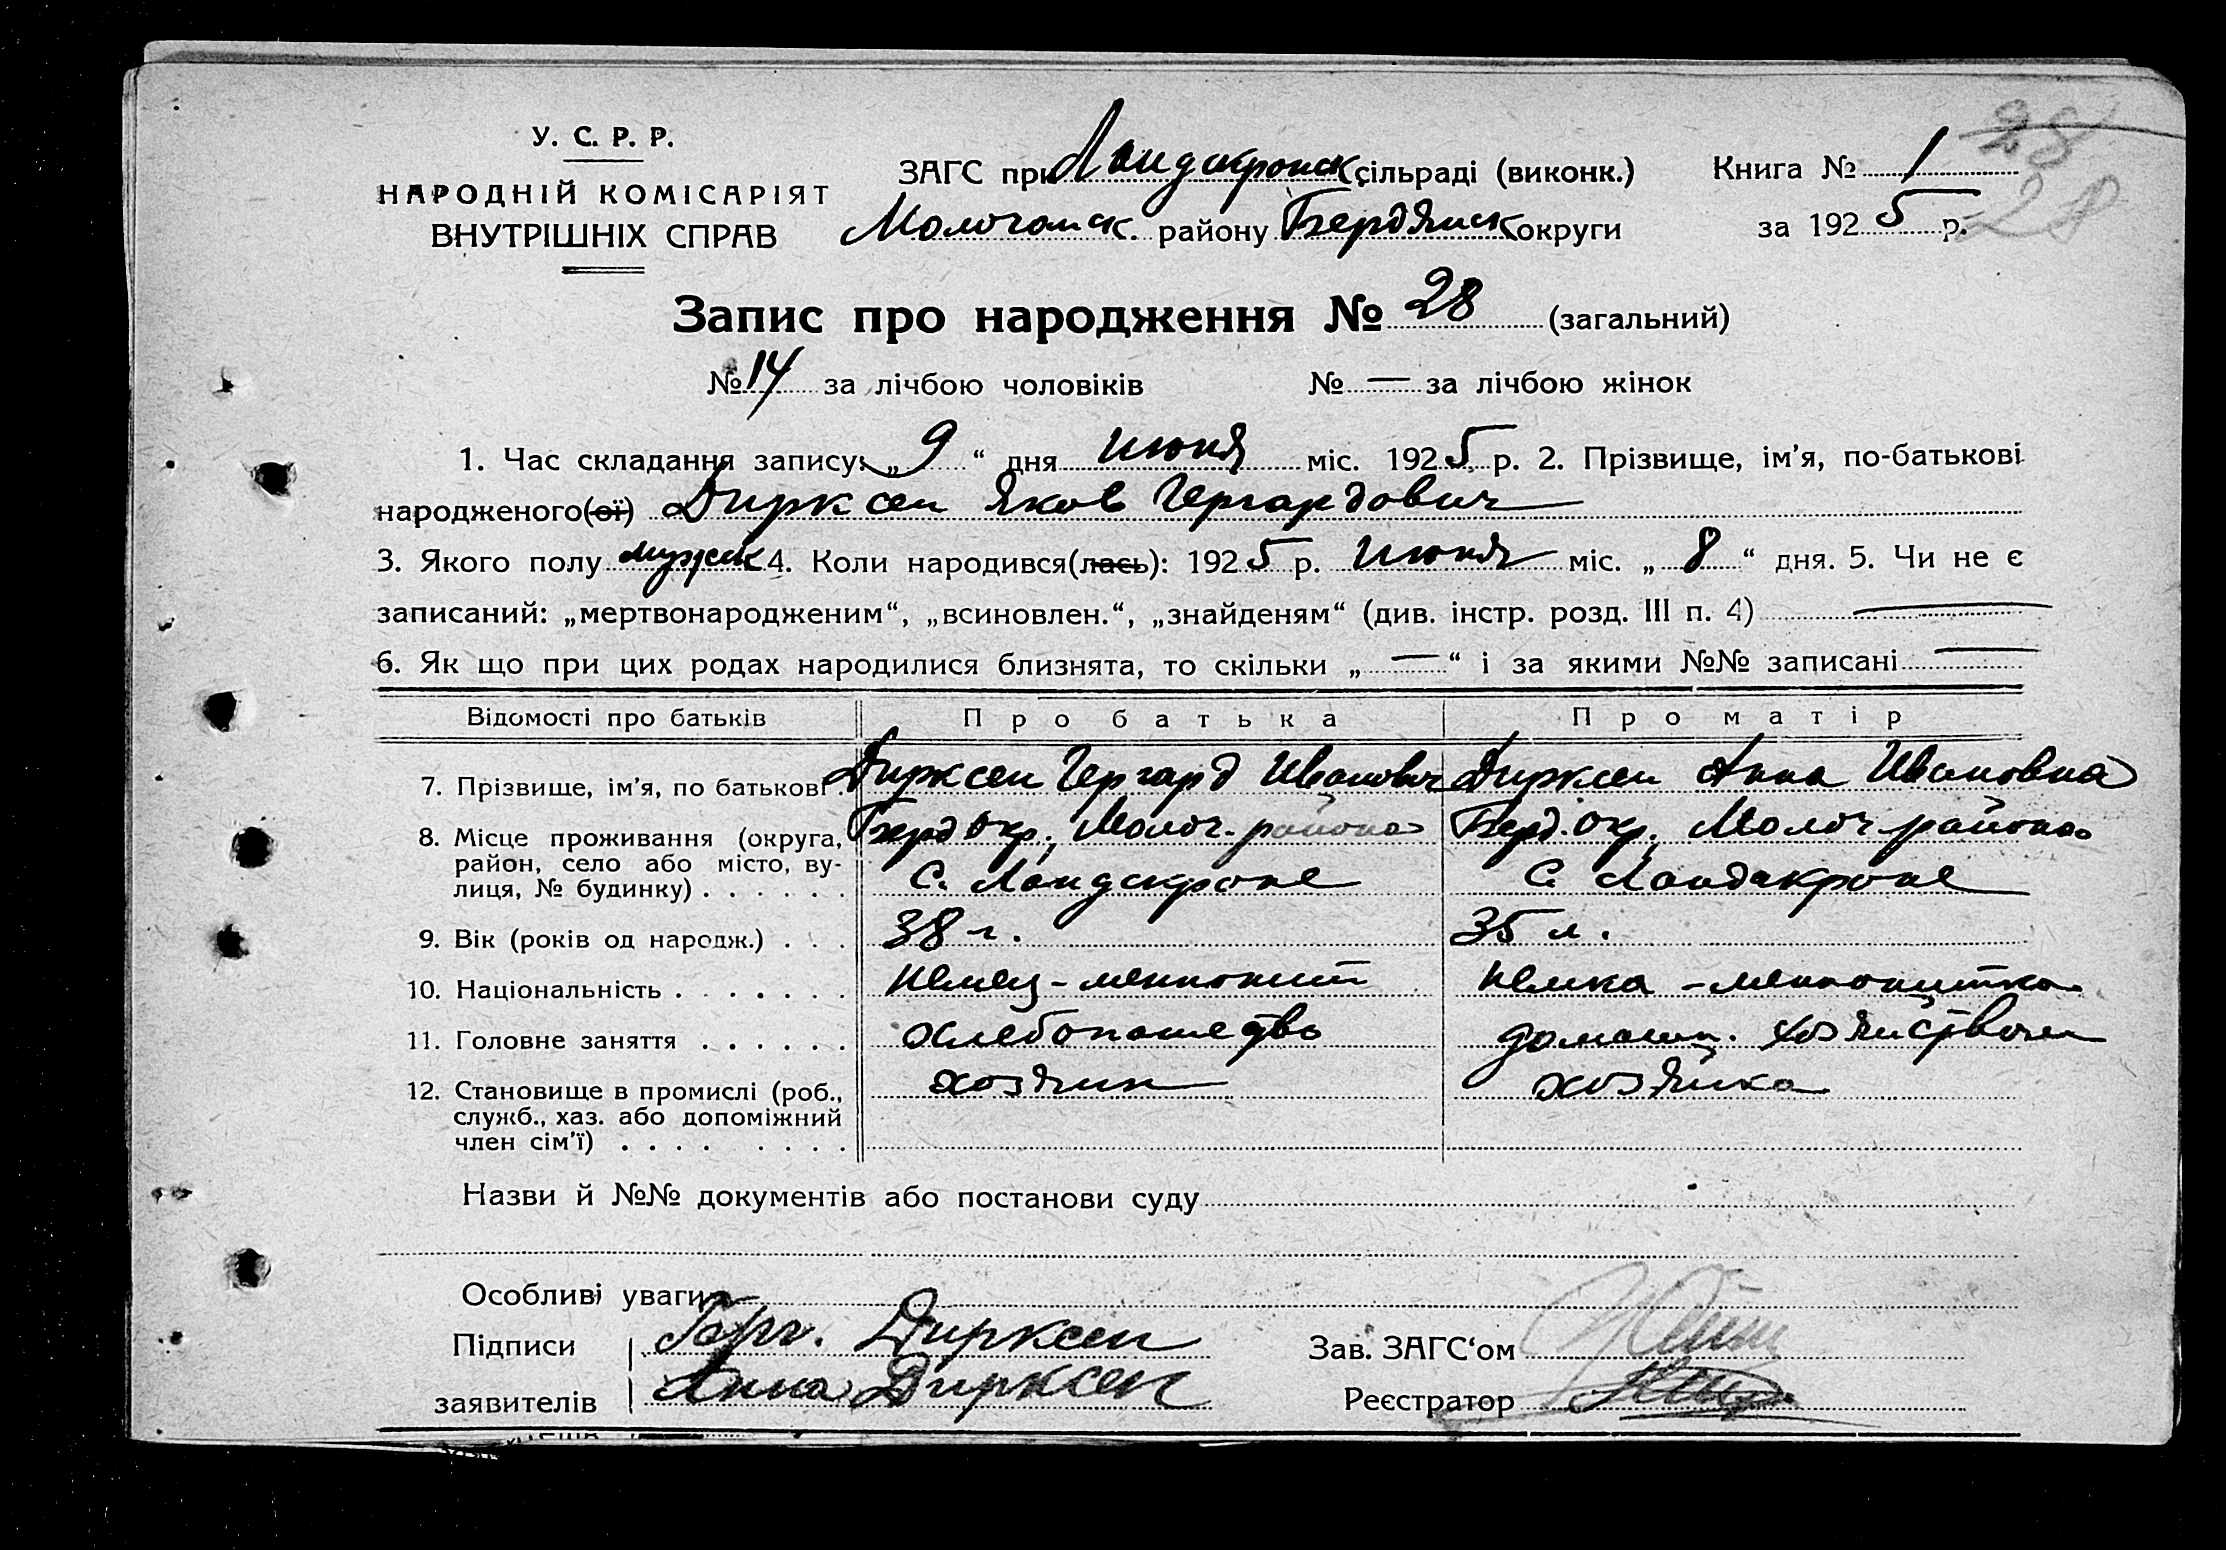 28
У. С. Р. Р.
НАРОДНІЙ КОМІСАРІЯТ
ВНУТРІШНІХ СПРАВ
ЗАГС при Ландскронск. сільраді (виконк.)
Молочанск. району Бердянск округи
Книга № 1
за 1925 р.
28
Запис про народження № 28 (загальний)
№ 14 за лічбою чоловіків № — за лічбою жінок
1. Час складання запису: „9“ дня июня міс. 1925 р. 2. Прізвище, ім'я, по-батькові
народженого(ої) Дирксен Яков Гергардович
3. Якого полу мужск 4. Коли народився(лась): 1925 р. июня міс. „8“ дня. 5. Чи не є
записаний: „мертвонародженим“, „всиновлен.“, „знайденям“ (див. інстр. розд. III п. 4) —
6. Як що при цих родах народилися близнята, то скільки „—“ і за якими №№ записані —
Відомості про батьків Про батька Про матір
7. Прізвище, ім'я, по батькові Дирксен Гергард Иванович Дирксен Анна Ивановна
8. Місце проживання (округа, Берд окр., Молоч. района Берд. окр. Молоч района
район, село або місто, ву-
лиця, № будинку) . . . . . . С. Ландскроне С. Ландскроне
9. Вік (років од народж.) . . . 38 г. 35 л.
10. Національність . . . . . . . немец-меннонит немка-меннонитка
11. Головне заняття . . . . . . хлебопашество домашн. хозяйством
12. Становище в промислі (роб., хозяин хозяйка
служб., хаз. або допоміжний
член сім'ї) . . . . . . . .
Назви й №№ документів або постанови суду
Особливі уваги
Підписи Герг. Дирксен
заявителів Анна Дирксен
Зав. ЗАГС'ом
Реєстратор